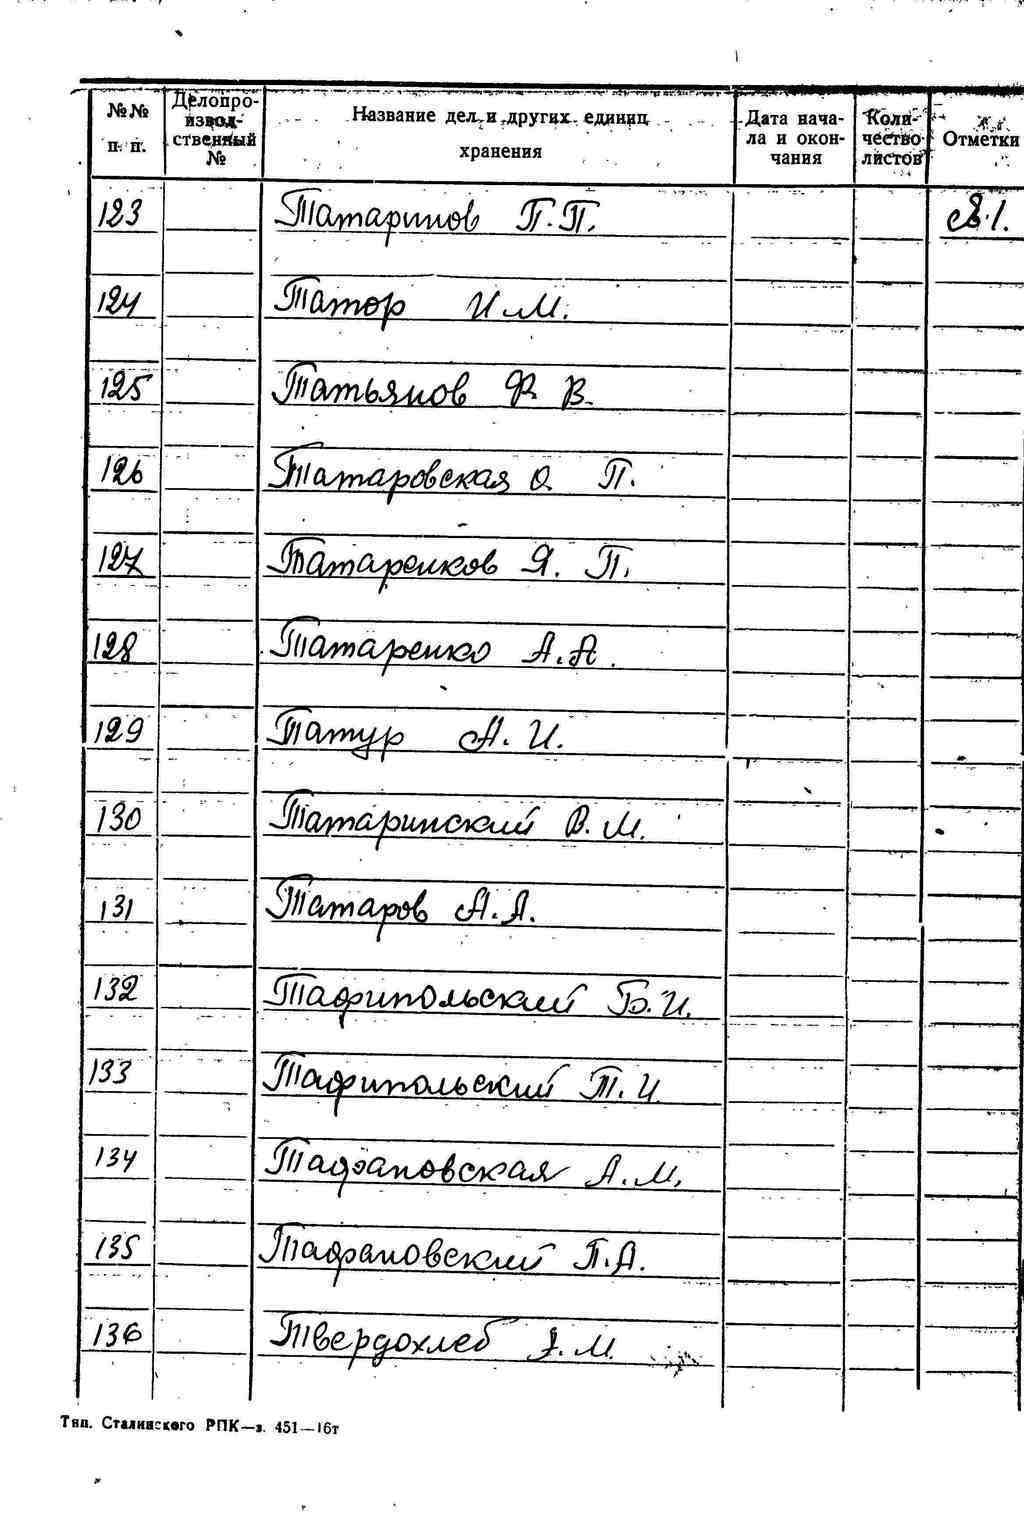 №№ п. п. Делопроизводственный № Название дел и других единиц хранения Дата начала и окончания Количество листов Отметки
123 Татаринов П. П.
124 Татор И. М.
125 Татьянов Ф. В.
126 Татаровская О. П.
127 Татаренков Я. П.
128 Татаренко А. А.
129 Татур А. И.
130 Татаринский В. М.
131 Татаров А. А.
132 Тафипольский Б. И.
133 Тафипольский Т. И.
134 Тафановская А. М.
135 Тафрановский П. А.
136 Твердохлеб М.
Тип. Сталинского РПК—з. 451—16т